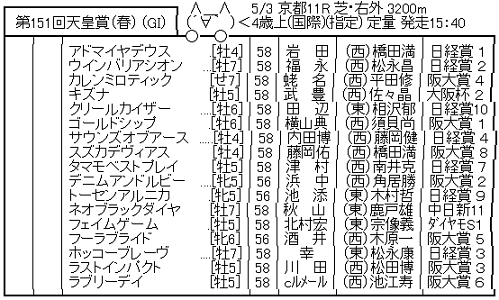 5/3 京都11R 芝・右外 3200m
第151回天皇賞(春) (GI) ＜4歳上(国際)(指定) 定量 発走15:40
アドマイヤデウス [牡4] 58 岩田 (西)橋田満 日経賞 1
ウインバリアシオン …[牡7] 58 福永 (西)松永昌 日経賞 2
カレンミロティック [せ7] 58 蛯名 (西)平田修 阪大賞 4
キズナ [牡5] 58 武豊 (西)佐々晶 大阪杯 2
クリールカイザー …[牡6] 58 田辺 (東)相沢郁 日経賞10
ゴールドシップ [牡6] 58 横山典 (西)須貝尚 阪大賞 1
サウンズオブアース …[牡4] 58 内田博 (西)藤岡健 日経賞 4
スズカデヴィアス [牡4] 58 藤岡佑 (西)橋田満 阪大賞 8
タマモベストプレイ [牡5] 58 津村 (西)南井克 日経賞 7
デニムアンドルビー …[牝5] 56 浜中 (西)角居勝 阪大賞 2
トーセンアルニカ [牝5] 56 池添 (東)木村哲 日経賞 9
ネオブラックダイヤ …[牡7] 58 秋山 (東)鹿戸雄 中日新11
フェイムゲーム [牡5] 58 北村宏 (東)宗像義 ダイヤモS1
フーラブライド [牝6] 56 酒井 (西)木原一 阪大賞 5
ホッコーブレーヴ …[牡7] 58 幸 (東)松永康 日経賞 3
ラストインパクト …[牡5] 58 川田 (西)松田博 阪大賞 3
ラブリーデイ [牡5] 58 cルメール (西)池江寿 阪大賞 6